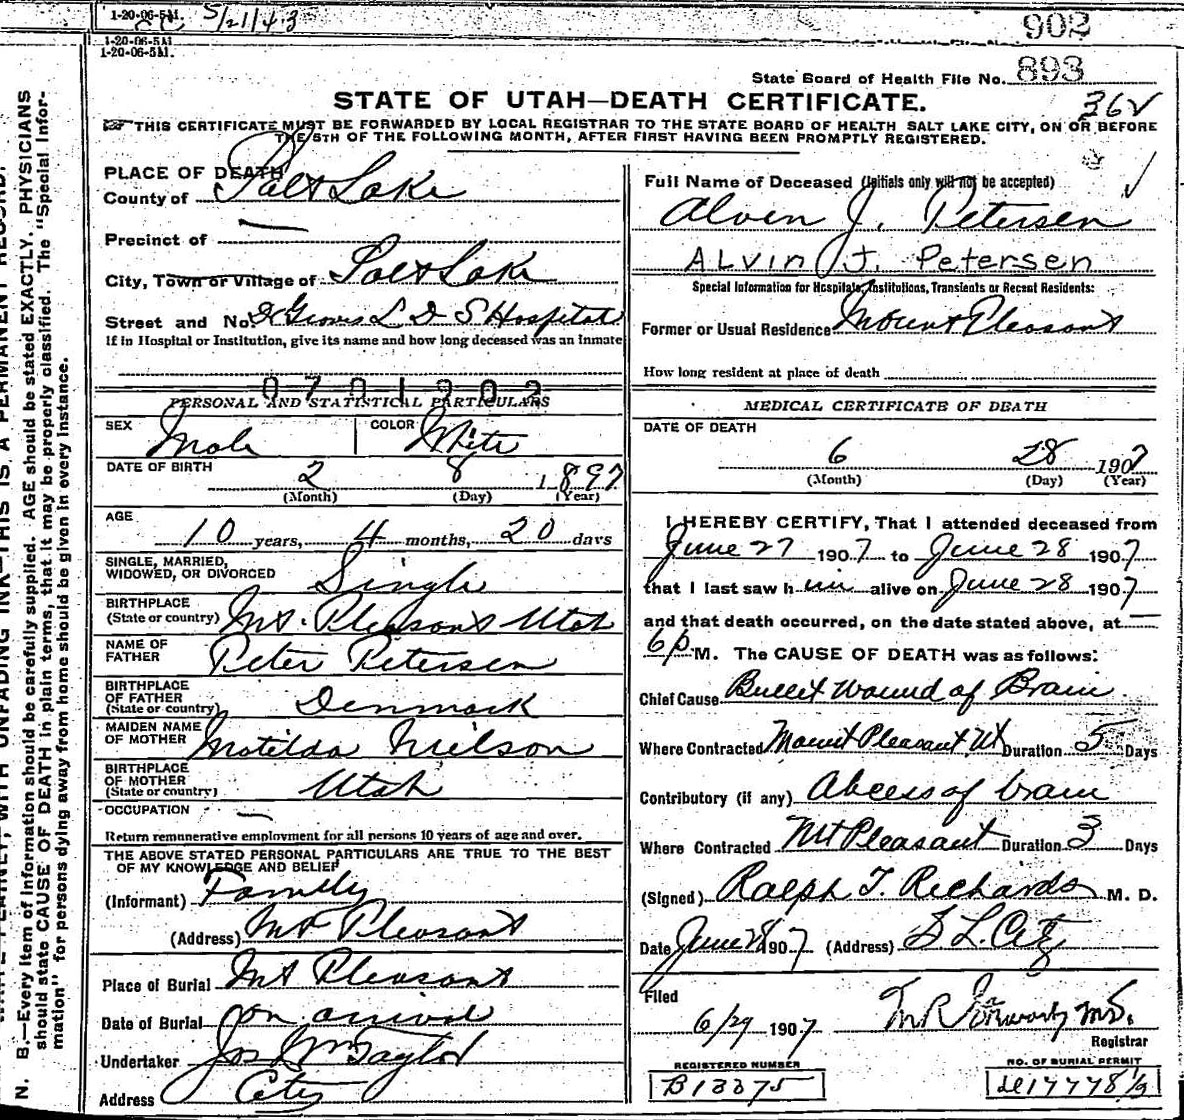 1-20-06-5M. 5/21/43
902
1-20-06-5M
1-20-06-5M.
State Board of Health File No. 893
STATE OF UTAH—DEATH CERTIFICATE.
36 ✓
THIS CERTIFICATE MUST BE FORWARDED BY LOCAL REGISTRAR TO THE STATE BOARD OF HEALTH SALT LAKE CITY, ON OR BEFORE
THE 5TH OF THE FOLLOWING MONTH, AFTER FIRST HAVING BEEN PROMPTLY REGISTERED.
PLACE OF DEATH
County of Salt Lake
Precinct of —
City, Town or Village of Salt Lake
Street and No. Dr Groves L D S Hospital
If in Hospital or Institution, give its name and how long deceased was an inmate
0701202
PERSONAL AND STATISTICAL PARTICULARS
SEX Male COLOR White
DATE OF BIRTH 2 8 1897
(Month) (Day) (Year)
AGE 10 years, 4 months, 20 days
SINGLE, MARRIED,
WIDOWED, OR DIVORCED Single
BIRTHPLACE
(State or country) Mt. Pleasant Utah
NAME OF
FATHER Peter Petersen
BIRTHPLACE
OF FATHER
(State or country) Denmark
MAIDEN NAME
OF MOTHER Matilda Neilson
BIRTHPLACE
OF MOTHER
(State or country) Utah
OCCUPATION —
Return remunerative employment for all persons 10 years of age and over.
THE ABOVE STATED PERSONAL PARTICULARS ARE TRUE TO THE BEST
OF MY KNOWLEDGE AND BELIEF
(Informant) Family
(Address) Mt Pleasant
Place of Burial Mt Pleasant
Date of Burial on arrival
Undertaker Jos Wm Taylor
Address City
Full Name of Deceased (Initials only will not be accepted) ✓
Alven J. Petersen
ALVin J. Petersen
Special Information for Hospitals, Institutions, Transients or Recent Residents:
Former or Usual Residence Mount Pleasant
How long resident at place of death
MEDICAL CERTIFICATE OF DEATH
DATE OF DEATH
6 28 1907
(Month) (Day) (Year)
I HEREBY CERTIFY, That I attended deceased from
June 27 1907 to June 28 1907
that I last saw h im alive on June 28 1907
and that death occurred, on the date stated above, at —
6 p. M. The CAUSE OF DEATH was as follows:
Chief Cause Bullet wound of Brain
Where Contracted Mount Pleasant, Ut Duration 5 Days
Contributory (if any) Abcess of brain
Where Contracted Mt Pleasant Duration 3 Days
(Signed) Ralph T. Richards M. D.
Date June 28 1907 (Address) S L City
Filed
6/29 1907
Registrar
REGISTERED NUMBER
B13375
NO. OF BURIAL PERMIT
N. B.—Every item of information should be carefully supplied. AGE should be stated EXACTLY. PHYSICIANS
should state CAUSE OF DEATH in plain terms, that it may be properly classified. The "Special Infor-
mation" for persons dying away from home should be given in every instance.
WRITE PLAINLY, WITH UNFADING INK—THIS IS A PERMANENT RECORD.